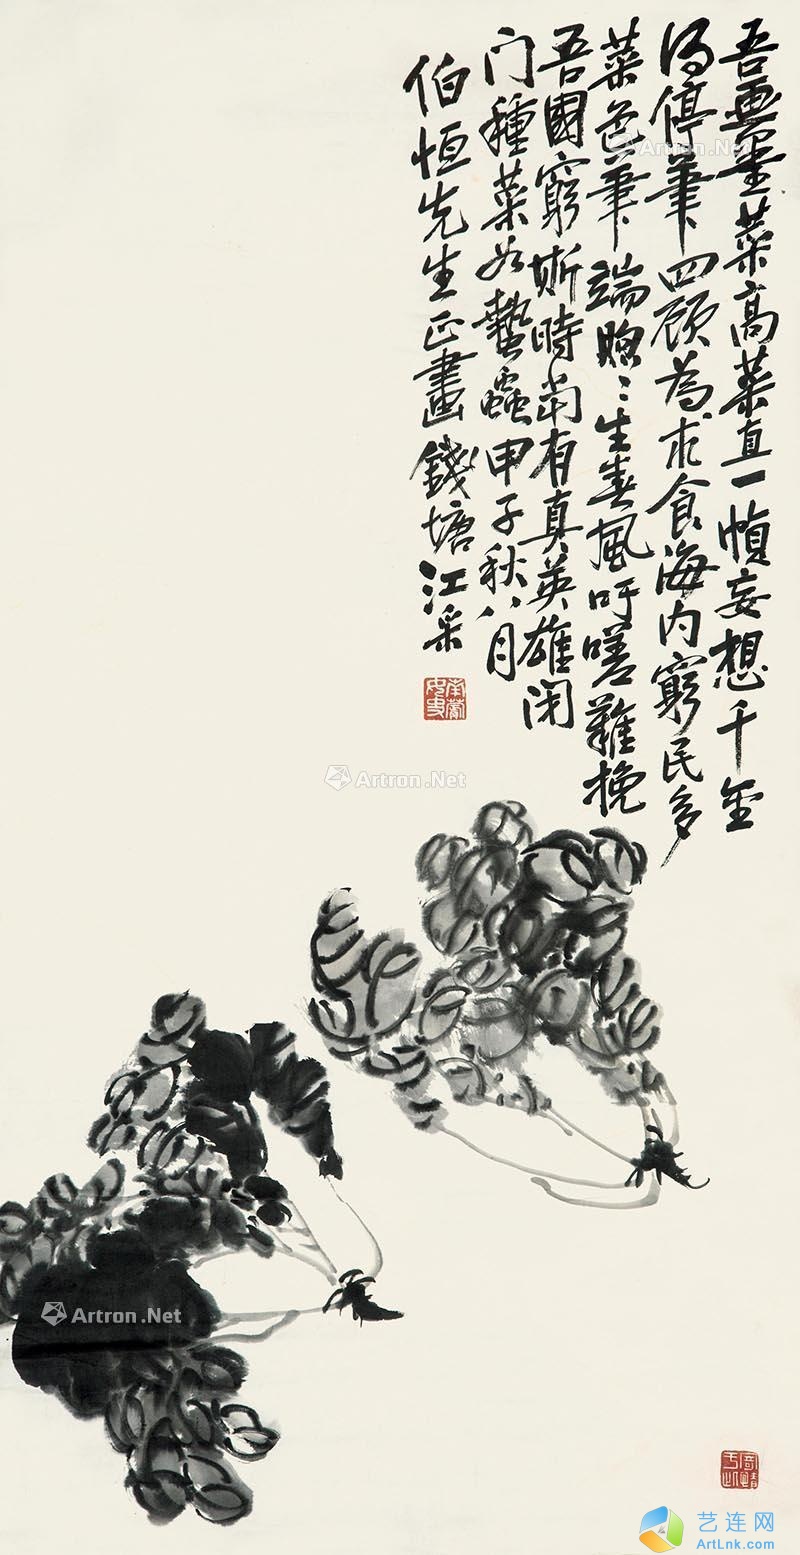 吾畫墨菜高菜直一幀妄想千金
得停筆四顧為求食海内窮民多
菜色筆端煦〻生春風吁嗟難挽
吾國窮斯時尚有真英雄閉
门種菜如蟄蟲甲子秋八月
伯恒先生正畫錢塘江采
南蘋女史
Artron.Net
Artron.Net
Artron.Net
艺连网
ArtLnk.com